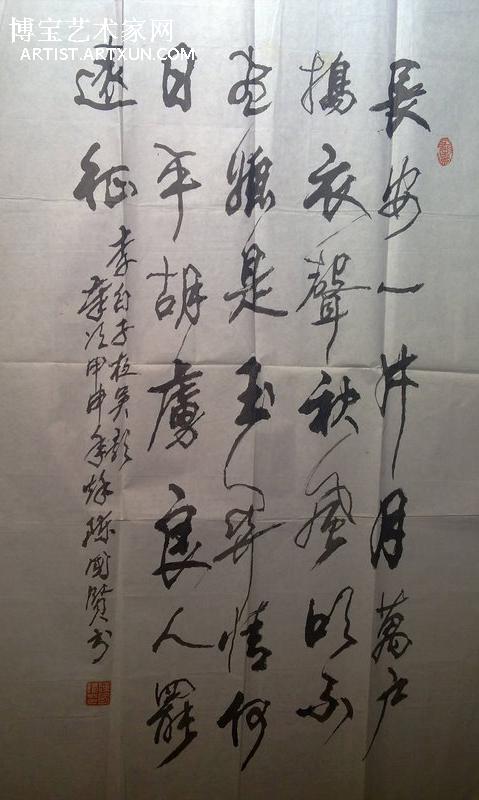 博宝艺术家网
ARTIST.ARTXUN.COM
長安一片月萬户
搗衣聲秋風吹不
盡總是玉關情何
日平胡虜良人罷
遠征
李白子夜吴歌
歲次甲申年陈國賢书